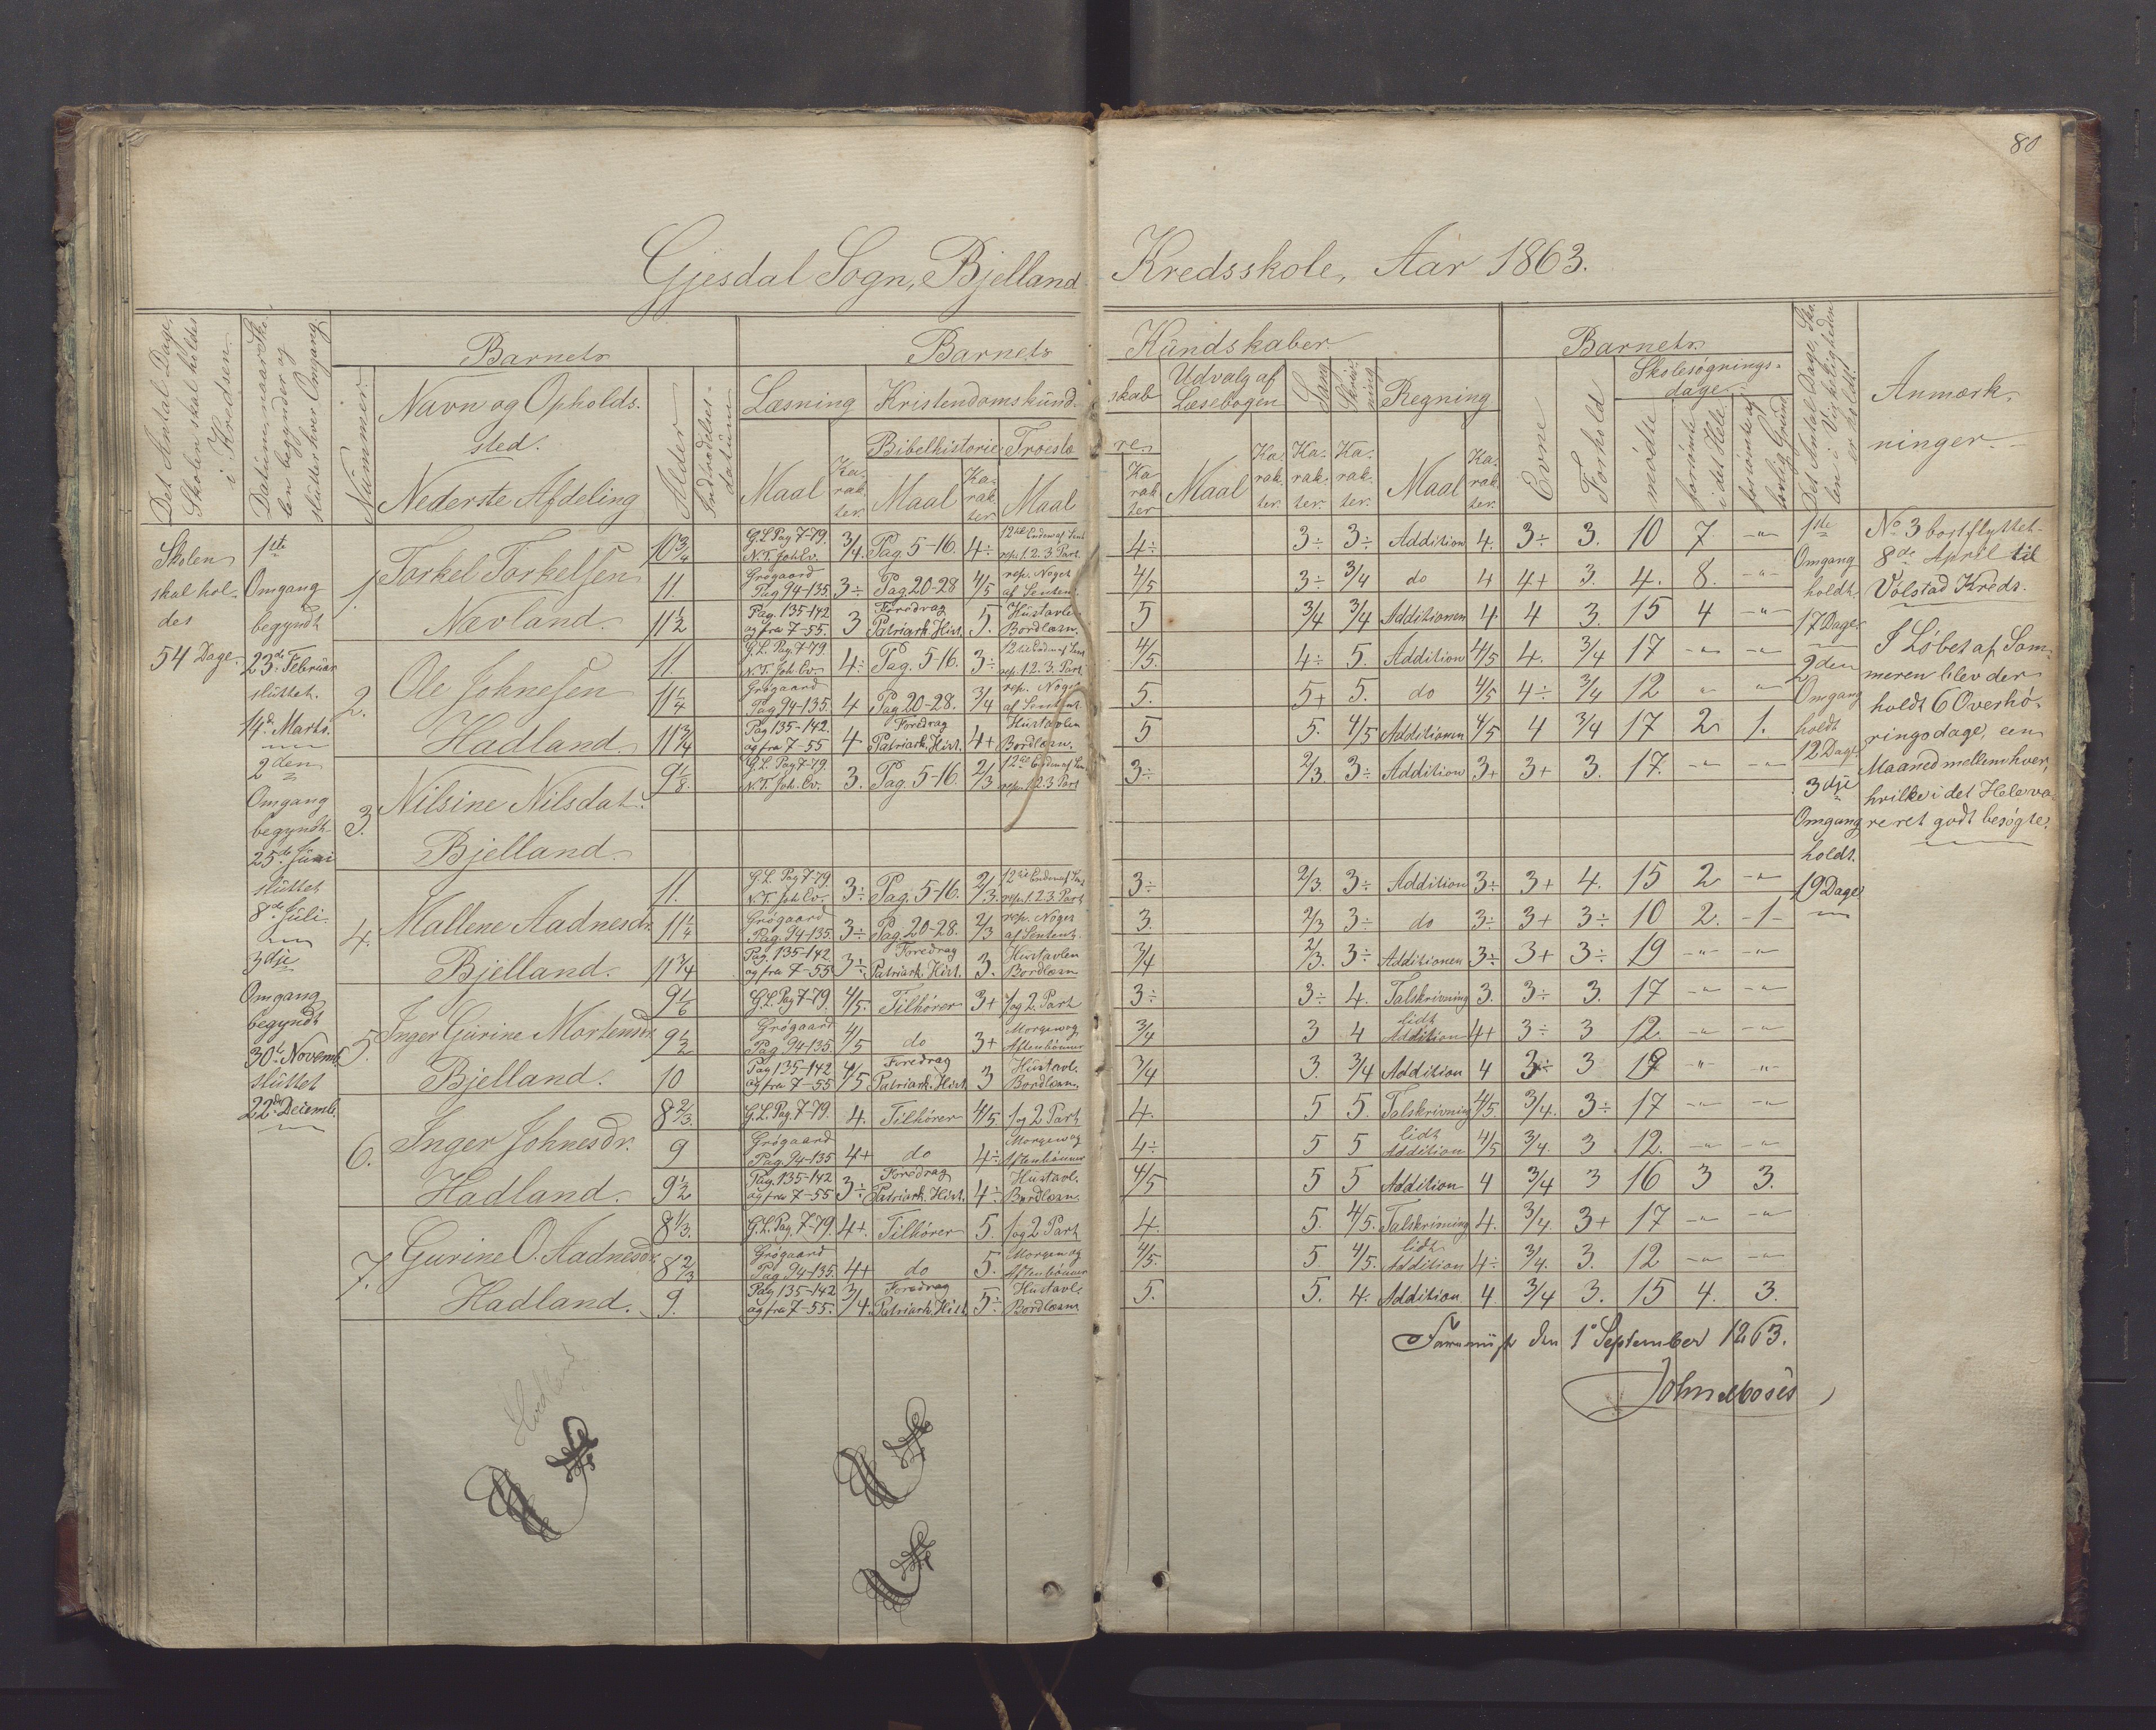 80
Gjesdal Sogn, Bjelland Kredsskole, Aar 1863.
Det Antal Dage, Skolen skal holdes i Kredsen.
Datum, naar Skolen begynder og slutter hver Omgang.
Barnets
Nummer.
Navn og Opholdssted.
Nederste Afdeling
Alder
Indtrædelsesdatum
Barnets Kundskaber
Læsning
Maal
Karakter.
Kristendomskundskab
Bibelhistorie
Maal
Karakter.
Troeslære
Maal
Karakter
Udvalg af Læsebogen
Maal
Karakter.
Sang
Karakter.
Skrivning
Karakter.
Regning
Maal
Karakter.
Barnets
Evne
Forhold
Skolesøgningsdage
mødte
forsømte i det Hele
forsømte af lovlig Grund
Det Antal Dage, Skolen i Virkeligheden er holdt.
Anmærkninger.
Skolen
skal hol-
des
54 Dage.
1ste
Omgang
begyndt
23de Februar
sluttet.
14de Marts.
2den
Omgang
begyndt
25de Juni
sluttet
8de Juli
3dje
Omgang
begyndt
30te Novemb.
sluttet
22de Decemb.
1. Torkel Torkelsen
Nævland.
10 3/4 G.L. Pag 7-79. N.T. Joh. Ev. 3/4. Pag. 5-16. 4÷ 12te Enden af Sent. rep. 1.2.3. Part 4÷ 3÷ 3÷ Addition 4. 3÷ 3. 10 7 -"-
11. Grøgaard Pag 94-135 3÷ Pag. 20-28 4/5 rep. Noget af Sentent. 4/5 3÷ 3/4 do 4 4+ 3. 4. 8. -"-
11 1/2 Pag. 135-142 og fra 7-55. 3 Foredrag Patriark. Hist. 5. Hustavlen Bordlæsn. 5 3/4 3/4 Additionen 4. 4 3. 15 4 -"-
2. Ole Johnesen
Hadland.
11. G.L. Pag. 7-79 N.T. Joh. Ev. 4÷ Pag. 5-16. 3÷ 12te Enden af Sent. rep. 1.2.3. Part 4/5. 4÷ 5. Addition 4/5 4. 3/4 17 -"- -"-
11 1/4 Grøgaard Pag 94-135. 4 Pag 20-28. 3/4 rep. Noget af Sentent. 5. 5+ 5. do 4/5 4÷ 3/4 12 " "
11 3/4 Pag 135-142. og fra 7-55 4 Foredrag Patriark. Hist. 4+ Hustavlen Bordlæsn. 5 5. 4/5 Additionen 4/5 4 3/4 17 2 1.
3. Nilsine Nilsdat.
Bjelland.
9 1/8. G.L. Pag 7-79 N.T. Joh. Ev. 3. Pag. 5-16. 2/3 12te Enden af Sent. rep. 1.2.3 Part 3÷ 2/3 3÷ Addition 3+ 3+ 3. 17. -"- -"-
4. Mallene Aadnesdr.
Bjelland.
11. G.L. Pag 7-79 N.T. Joh. Ev. 3÷ Pag. 5-16. 2/3. 12te Enden af Sent. rep. 1.2.3. Part 3÷ 2/3. 3÷ Addition 3÷ 3+ 4. 15 2 -"-
11 1/4 Grøgaard Pag. 94-135. 3÷ Pag. 20-28. 2/3 rep. Noget af Sentent. 3. 2/3 3÷ do 3÷ 3+ 3÷ 10 2. -1-
11 3/4 Pag. 135-142 og fra 7-55 3÷ Foredrag Patriark. Hist. 3. Hustavlen Bordlæsn 3/4 2/3. 3÷ Additionen 3÷ 3+ 3÷ 19 -"- -"-
5. Inger Gurine Mortensdr.
Bjelland.
9 1/6 G.L. Pag 7-79 4/5. Tilhører 3+ 1 og 2 Part 3÷ 3÷ 4. Talskrivning 3. 3÷ 3. 17 -"- -"-
9 1/2 Grøgaard Pag 94-135. 4/5 do 3+ Morgen og Aftenbønner 3/4 3 4 lidt Addition 4+ 3÷ 3 12. -"- -"-
10 Pag 135-142 og fra 7-55 4/5 Foredrag Patriark. Hist. 3 Hustavl. Bordlæsn. 3/4 3. 3/4 Addition 4 3÷ 3 19 -"- -"-
6. Inger Johnesdr.
Hadland.
8 2/3. G.L. Pag. 7-79. 4. Tilhører 4/5 1 og 2 Part 4. 5 5. Talskrivning 4/5. 3/4. 3÷ 17 -"- -"-
9 Grøgaard Pag. 94-135 4+ do 4÷ Morgen og Aftenbønner 4÷ 5 5 lidt Addition 4/5 3/4. 3 12. -"- -"-
9 1/2 Pag. 135-142 og fra 7-55 3÷ Foredrag Patriark. Hist. 4÷ Hustavl. Bordlæsn. 4/5 5 5 Addition 4 3/4 3 16 3 3.
7. Gurine O. Aadnesdr.
Hadland.
8 1/3. G.L. Pag. 7-79. 4+. Tilhører 5. 1 og 2 Part 4. 5. 4/5. Talskrivning 4. 3/4. 3+ 17 -"- -"-
8 2/3 Grøgaard Pag 94-135. 4+ do 5. Morgen og Aftenbønner 4/5. 5. 4/5. lidt Addition 4÷ 3/4. 3. 12 -"- -"-
9. Pag 135-142 og fra 7-55. 3/4. Foredrag Patriark. Hist. 5÷ Hustavle Bordlæsn 5. 5. 4. Addition 4. 3/4 3. 15 4. 3.
1ste
Omgang
holdt.
17 Dage.
2den
Omgang
holdt
12 Dage.
3dje
Omgang
holdt.
19 Dage
No 3 bortflyttet
8de April til
Volstad Kreds.
I Løbet af Som-
meren blev der
holdt 6 Overhø-
ringsdage, een
Maaned mellem hver,
hvilke i det Hele va-
re ret godt besøgte.
den 1. September 1863.
John Moses